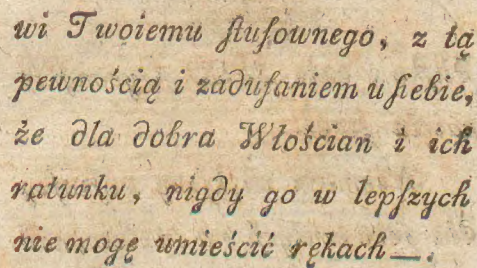 wi Twoiemu ſtuſownego, z tą
pewnością i zaduſaniem u ſiebie,
że dla dobra Włościan i ich
ratunku, nigdy go w lepſzych
nie mogę umieścić rękach—.